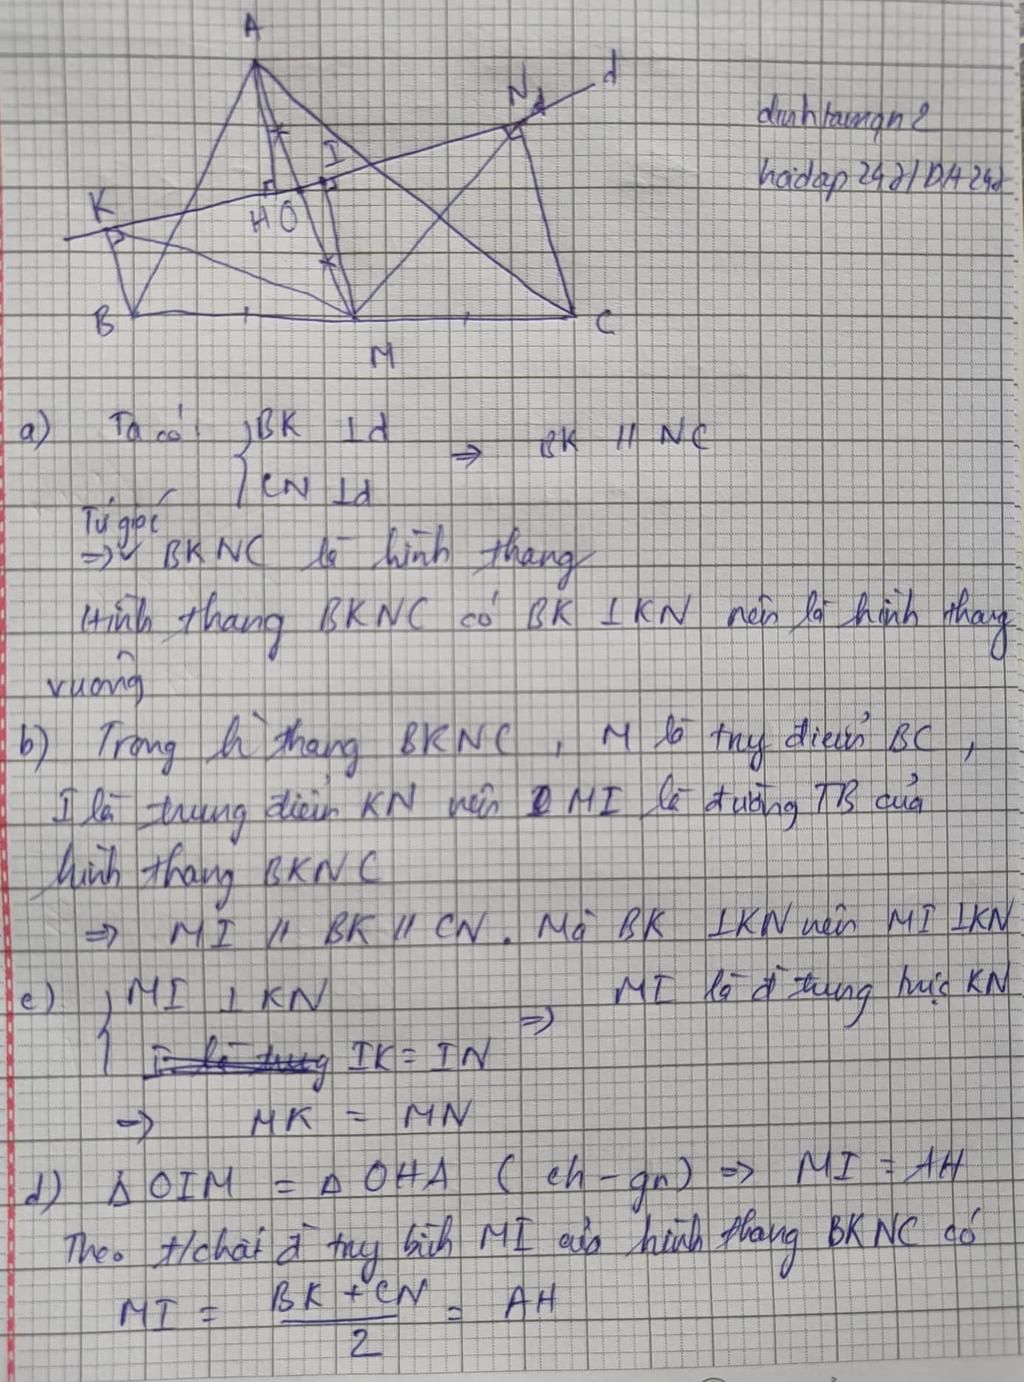 A
N
d
I
K
H O
B
M
C
hoidap 247
a) Ta có: { BK ⊥ d
CN ⊥ d ⇒ BK // NC
Tứ giác
⇒ BKNC là hình thang
Hình thang BKNC có BK ⊥ KN nên là hình thang
vuông
b) Trong h thang BKNC, M là tng điểm BC,
I là trung điểm KN nên MI là đường TB của
hình thang BKNC
⇒ MI // BK // CN. Mà BK ⊥ KN nên MI ⊥ KN
c) { MI ⊥ KN
IK = IN ⇒ MI là đ trung trực KN
⇒ MK = MN
d) Δ OIM = Δ OHA (ch-gn) ⇒ MI = AH
Theo t/chất đ tng bình MI của hình thang BKNC có
MI = (BK + CN)/2 = AH